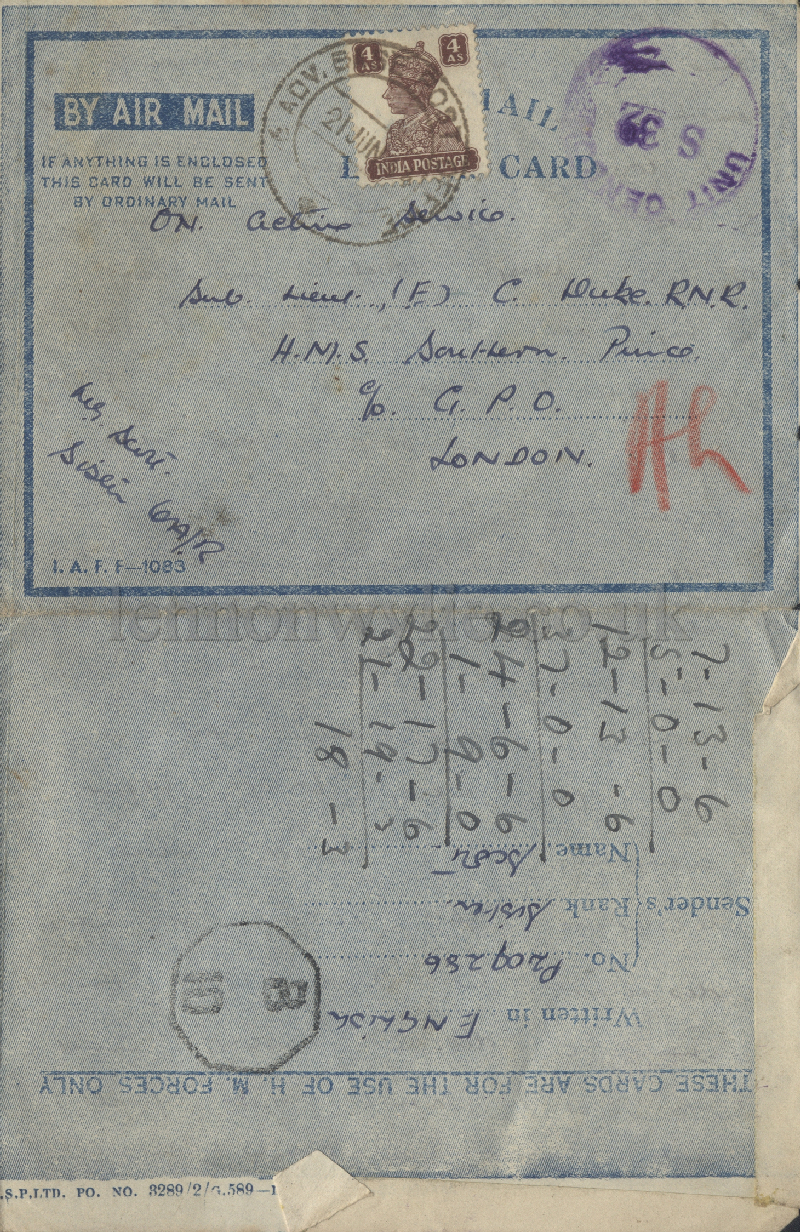 BY AIR MAIL
IF ANYTHING IS ENCLOSED
THIS CARD WILL BE SENT
BY ORDINARY MAIL
4 AS
4 AS
INDIA POSTAGE
MAIL
CARD
ADV. BASE
21 JUN
UNIT CENSOR
S 32
ON Active Service.
Sub Lieut. (E) C. Duke. R.N.R.
H.M.S. Southern. Prince.
c/o. G. P. O.
LONDON.
Sister
I. A. F. F—1083
lennonwylie.co.uk
7-13-6
5-0-0
12-13-6
7-0-0
4-6-6
1-9-0
22-17-6
21-19-3
18-3
Name. Scott
Sender's Rank Sister
No. P209286
Written in ENGLISH
THESE CARDS ARE FOR THE USE OF H. M. FORCES ONLY
.S.P.LTD. PO. NO. 3289/2/G.589—1